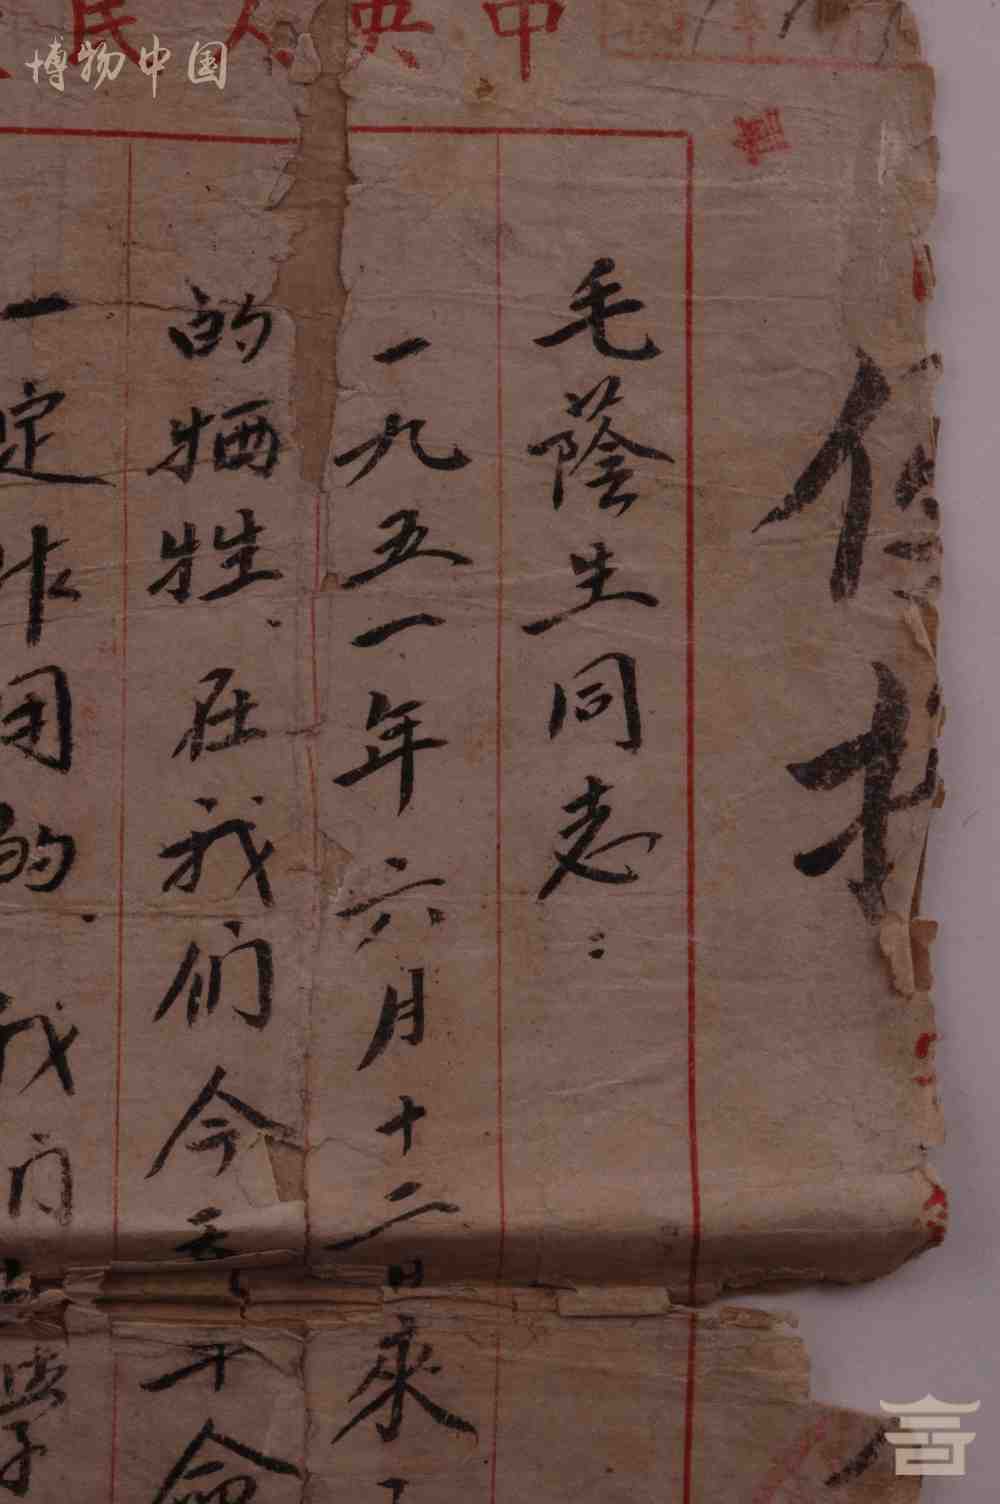 中央人民
毛蔭生同志：
一九五一年六月十二日來
的牺牲．在我们今
命
一定作团的．我们
博物中国